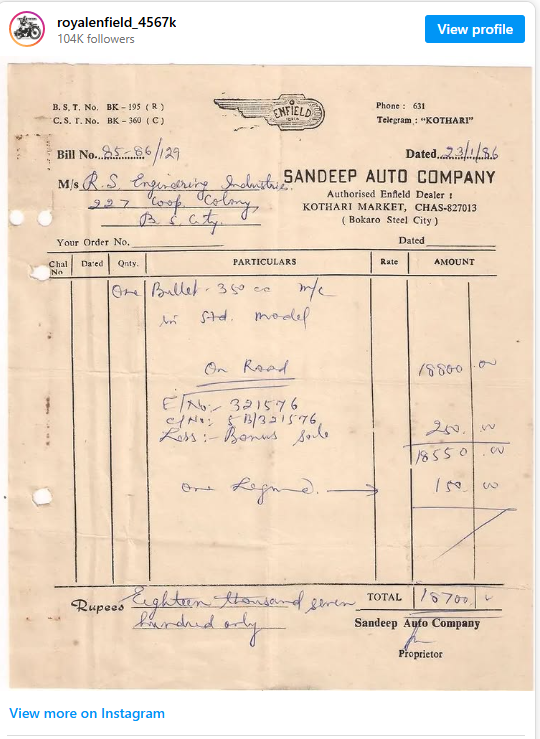 royalenfield_4567k
104K followers
View profile
B. S. T. No. BK - 195 ( R )
C. S. T. No. BK - 360 ( C )
ENFIELD
INDIA
Phone : 631
Telegram : "KOTHARI"
Bill No. 85-86/129
Dated 23/1/86
M/s R. S. Engineering Industries.
227 Coop. Colony,
B. S. City.
SANDEEP AUTO COMPANY
Authorised Enfield Dealer :
KOTHARI MARKET, CHAS-827013
( Bokaro Steel City )
Your Order No.
Dated
Chal No
Dated
Qnty.
PARTICULARS
Rate
AMOUNT
One Bullet - 350 cc m/c
in Std. model
On Road 18800 .00
E/No:- 321576
C/No:- 5 B/321576
Less :- Bonus 250 .00
18550 .00
one 150 .00
Rupees Eighteen thousand seven
hundred only
TOTAL 18700
Sandeep Auto Company
Proprietor
View more on Instagram